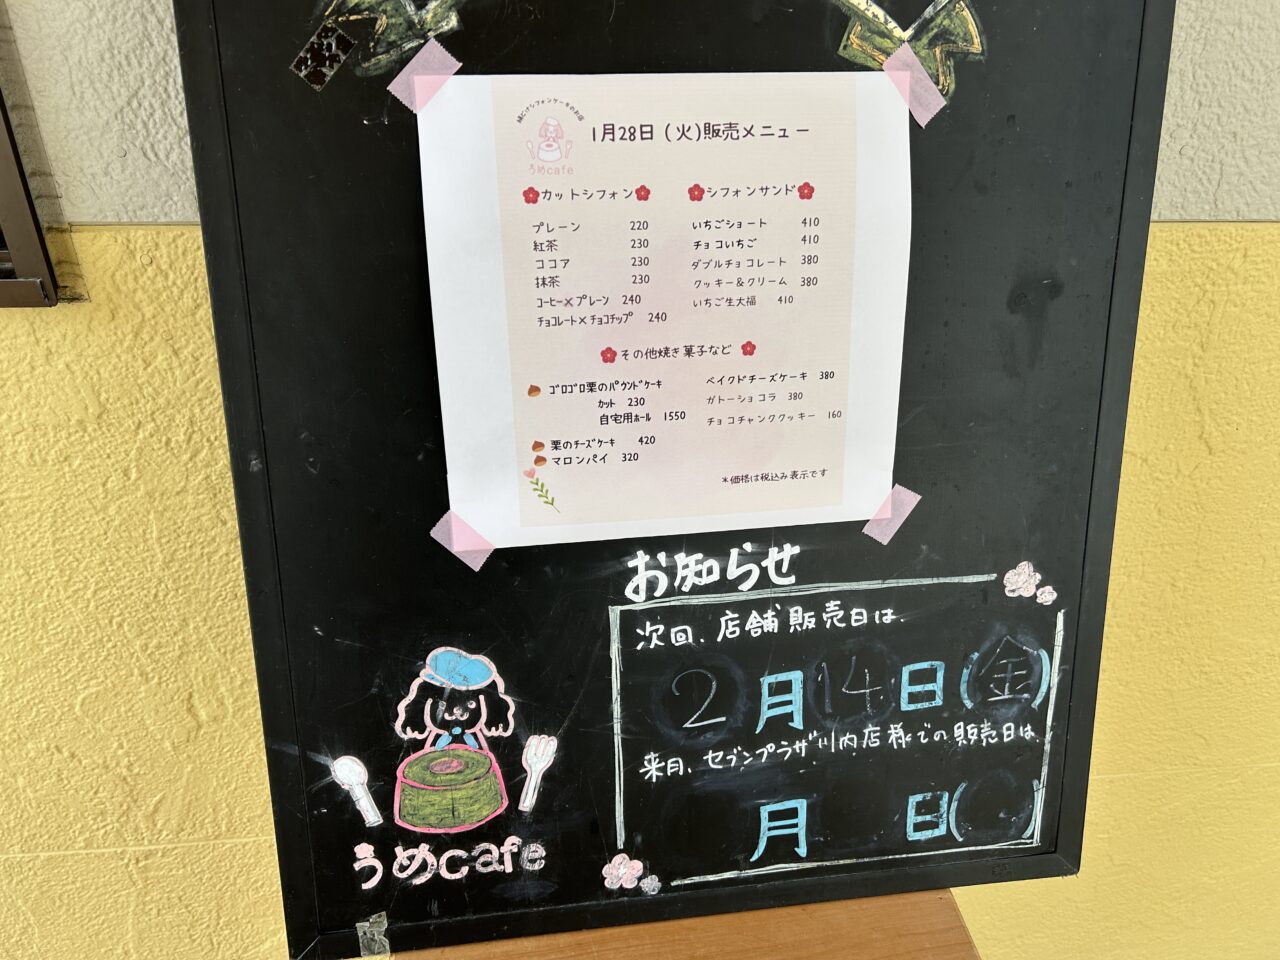 うめcafe
1月28日(火)販売メニュー
カットシフォン
プレーン 220
紅茶 230
ココア 230
抹茶 230
コーヒー×プレーン 240
チョコレート×チョコチップ 240
シフォンサンド
いちごショート 410
チョコいちご 410
ダブルチョコレート 380
クッキー&クリーム 380
いちご生大福 410
その他焼き菓子など
ゴロゴロ栗のパウンドケーキ
カット 230
自宅用ホール 1550
栗のチーズケーキ 420
マロンパイ 320
ベイクドチーズケーキ 380
ガトーショコラ 380
チョコチャンククッキー 160
*価格は税込み表示です
お知らせ
次回、店舗販売日は、
2月14日(金)
来月、セブンプラザ川内店様での販売日は、
月 日( )
うめcafe